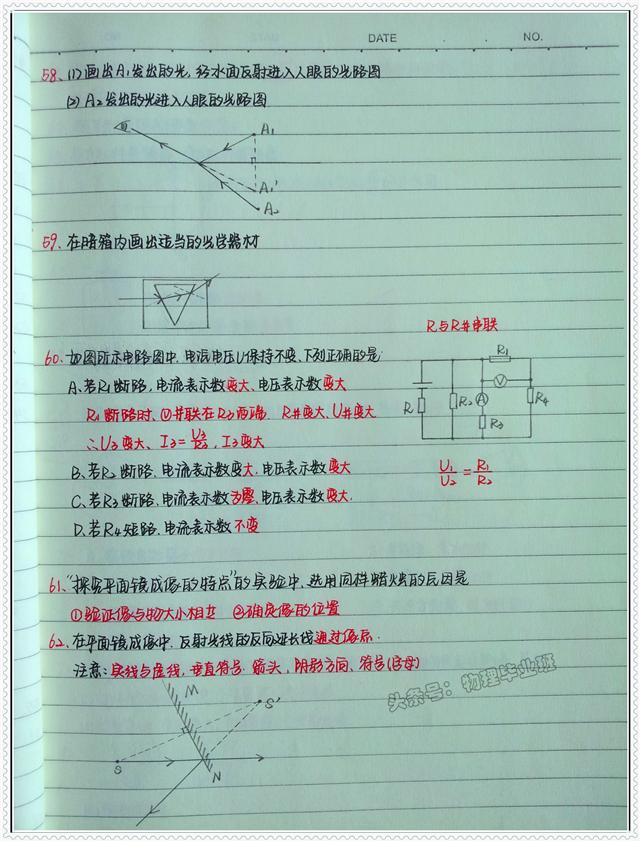 DATE NO.
58、(1)画出A₁发出的光,经水面反射进入人眼的光路图
(2) A₂发出的光进入人眼的光路图
A₁
A₁'
A₂
59、在暗箱内画出适当的光学器材
R与R并串联
60、如图所示电路图中,电源电压U保持不变、下列正确的是
A、若R₁断路,电流表示数变大、电压表示数变大
R₁断路时、Ⓥ并联在R₃两端、R并变大、U并变大
∴U₃变大、I₃=U₃/R₃,I₃变大
B、若R₂断路、电流表示数变大、电压表示数变大
C、若R₃断路、电流表示数为零、电压表示数变大
D、若R₄短路、电流表示数不变
R₁
V
R
R₂
A
R₄
R₃
U₁/U₂=R₁/R₂
61、"探究平面镜成像的特点"的实验中,选用同样蜡烛的原因是
①验证像与物大小相等 ②确定像的位置
62、在平面镜成像中,反射光线的反向延长线通过像点.
注意:实线与虚线,垂直符号、箭头,阴影方向、符号(字母)
M
S'
S
N
头条号:物理毕业班